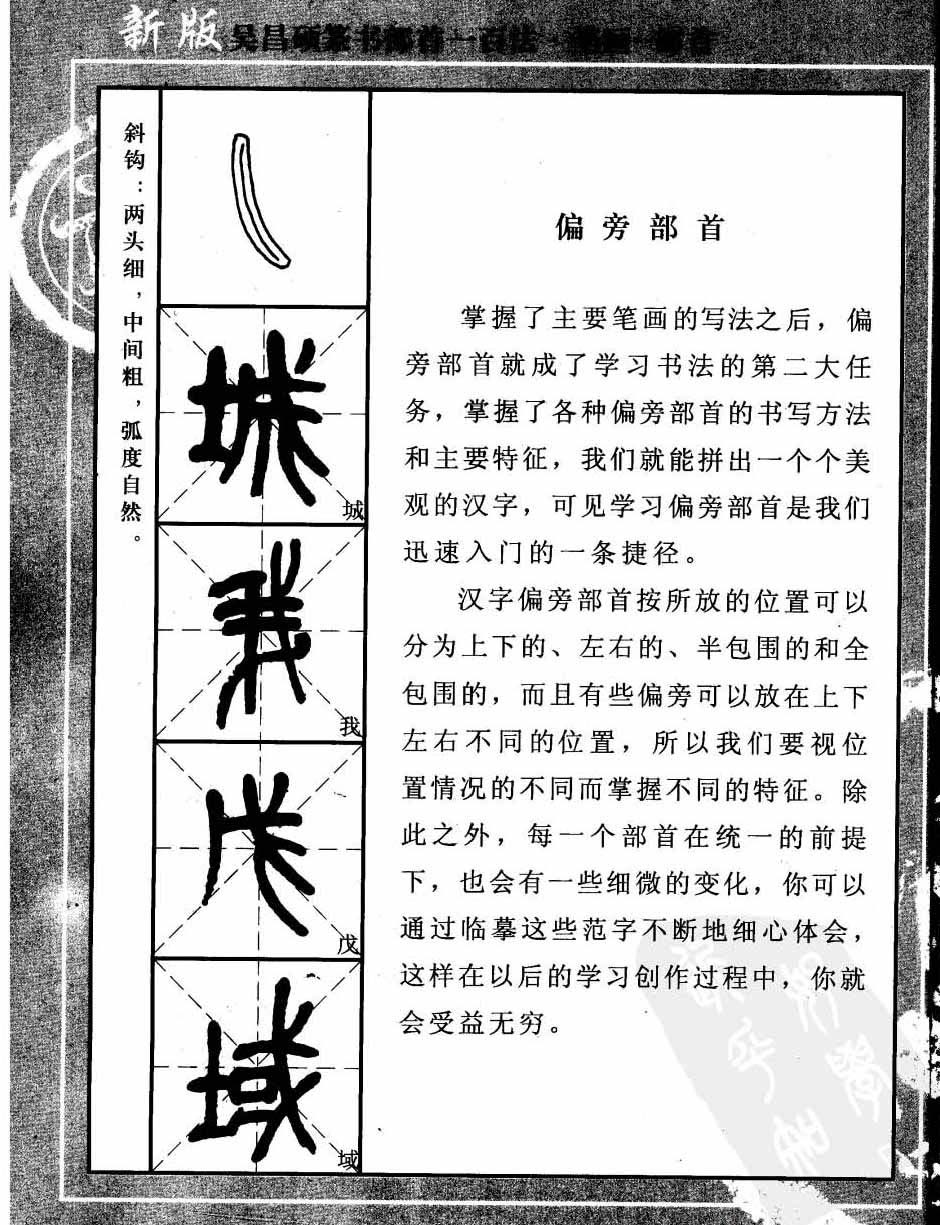 新版 吴昌硕篆书部首一百法
斜钩：两头细，中间粗，弧度自然。
城
我
戊
域
偏旁部首
掌握了主要笔画的写法之后，偏
旁部首就成了学习书法的第二大任
务，掌握了各种偏旁部首的书写方法
和主要特征，我们就能拼出一个个美
观的汉字，可见学习偏旁部首是我们
迅速入门的一条捷径。
汉字偏旁部首按所放的位置可以
分为上下的、左右的、半包围的和全
包围的，而且有些偏旁可以放在上下
左右不同的位置，所以我们要视位
置情况的不同而掌握不同的特征。除
此之外，每一个部首在统一的前提
下，也会有一些细微的变化，你可以
通过临摹这些范字不断地细心体会，
这样在以后的学习创作过程中，你就
会受益无穷。